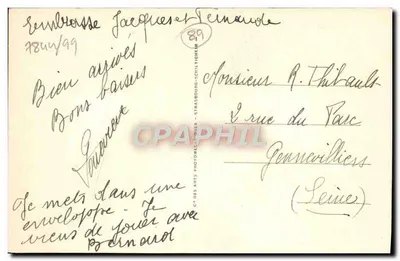 Embrasse Jacques et Fernande
7844/99
89
Bien arrivés
Bons baisers
Monsieur R. Thibault
2 rue du Parc
Gennevilliers
(Seine)
Je mets dans une
enveloppe. Je
viens de jouer avec
Bernard
CPAPHIL.COM